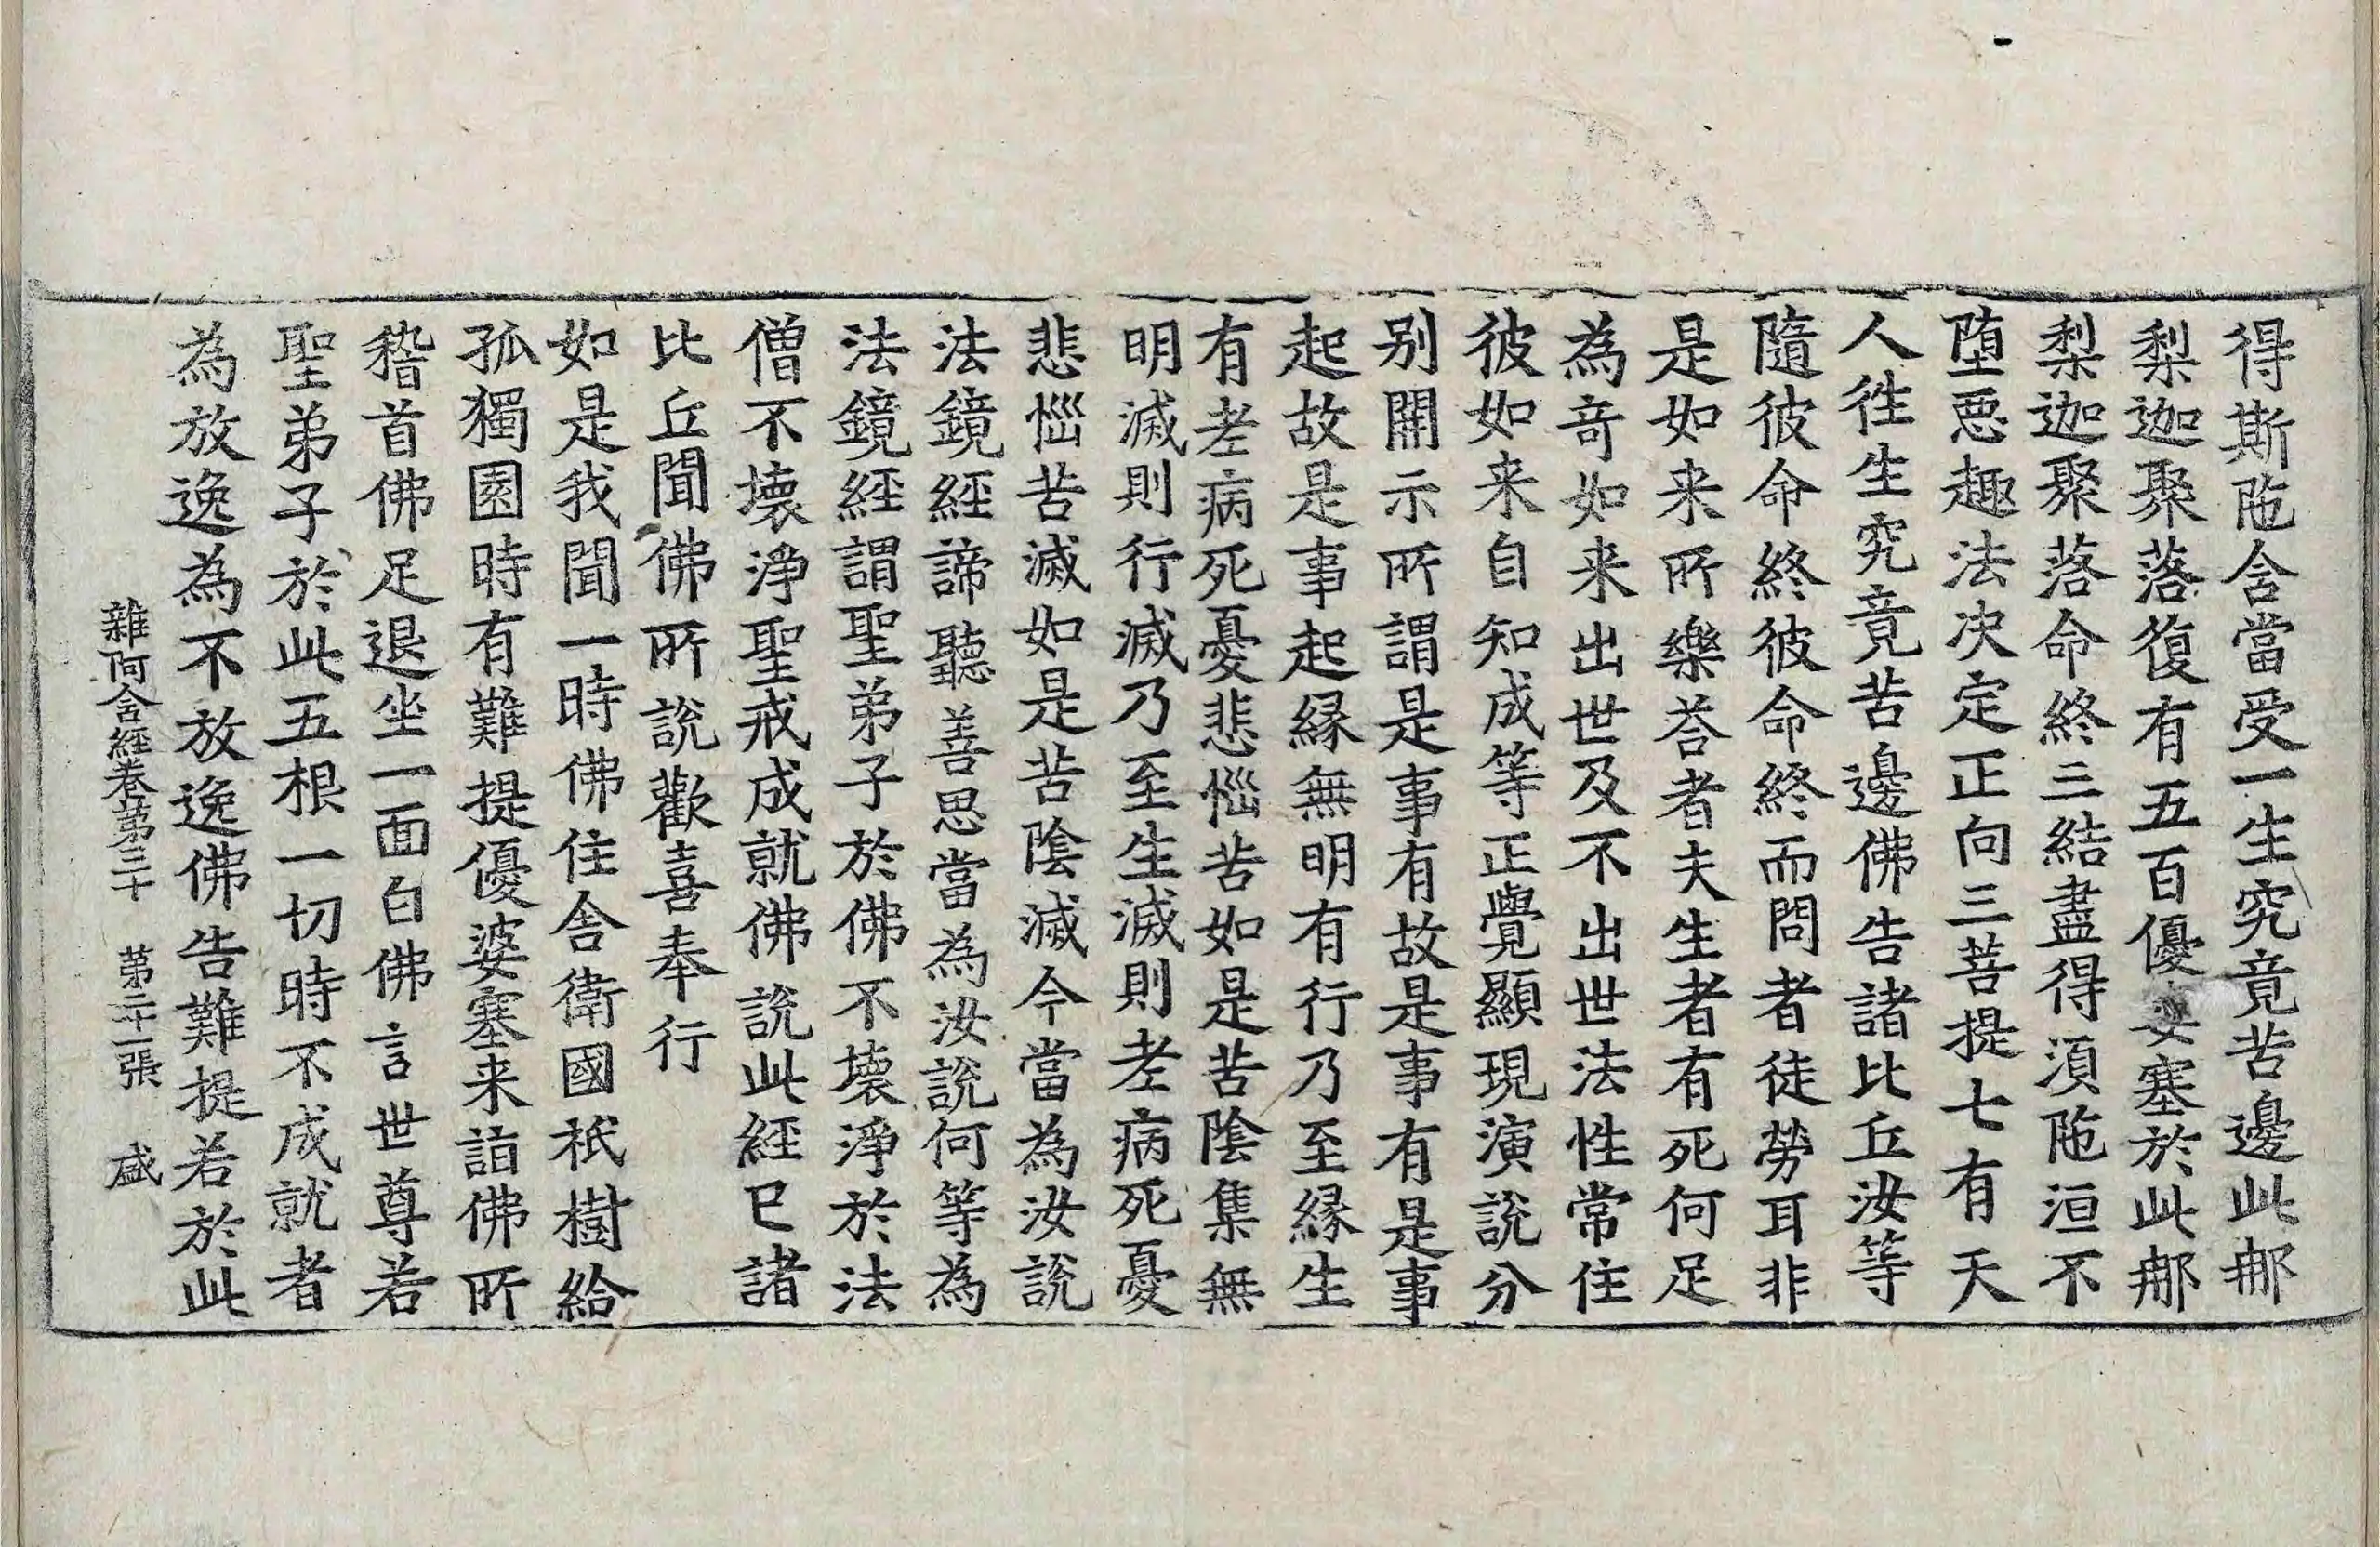 得斯陁含當受一生究竟苦邊此𨚗
梨迦聚落復有五百優婆塞於此𨚗
梨迦聚落命終三結盡得須陁洹不
堕惡趣法决定正向三菩提七有天
人徃生究竟苦邊佛告諸比丘汝等
隨彼命終彼命終而問者徒勞耳非
是如来所樂荅者夫生者有死何足
為竒如来出世及不出世法性常住
彼如来自知成等正覺顯現演說分
别開示所謂是事有故是事有是事
起故是事起縁無明有行乃至縁生
有老病死憂悲惱苦如是苦陰集無
明滅則行滅乃至生滅則老病死憂
悲惱苦滅如是苦陰滅今當為汝說
法鏡經諦聽善思當為汝說何等為
法鏡經謂聖弟子於佛不壊淨於法
僧不壊淨聖戒成就佛說此經已諸
比丘聞佛所說歡喜奉行
如是我聞一時佛住舍衛國祇樹給
孤獨園時有難提優婆塞来詣佛所
稽首佛足退坐一面白佛言世尊若
聖弟子於此五根一切時不成就者
為放逸為不放逸佛告難提若於此
雜阿含經卷第三十 第二十一張 盛